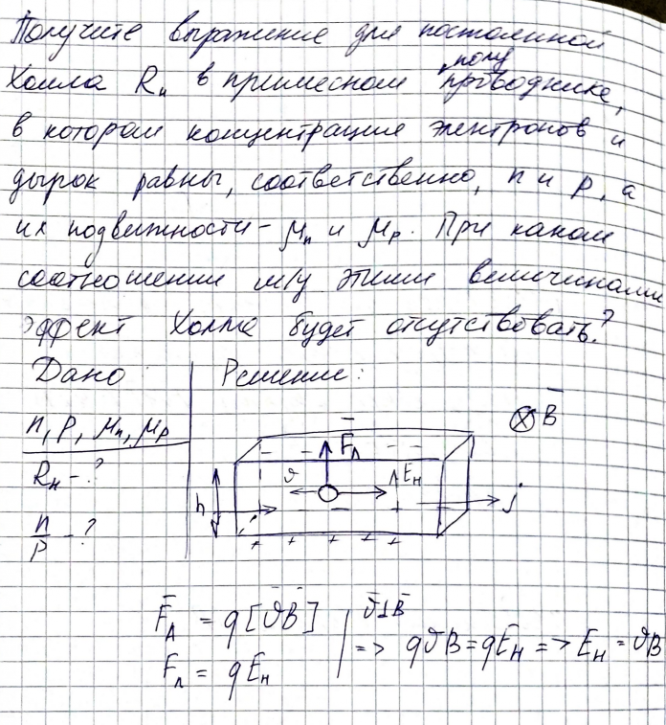 Получите выражение для постоянной
Холла Rн в примесном полупроводнике,
в котором концентрация электронов и
дырок равны, соответственно, n и p, а
их подвижности - μn и μp. При каком
соотношении м/у этими величинами
эффект Холла будет отсутствовать?
Дано
Решение:
n, p, μn, μp
Rн - ?
n/p - ?
B
Fл
ϑ
Eн
h
j
- - - -
+ + + + +
F̄л = q[ϑ̄B̄] | ϑ̄⊥B̄
Fл = qEн | => qϑB = qEн => Eн = ϑB